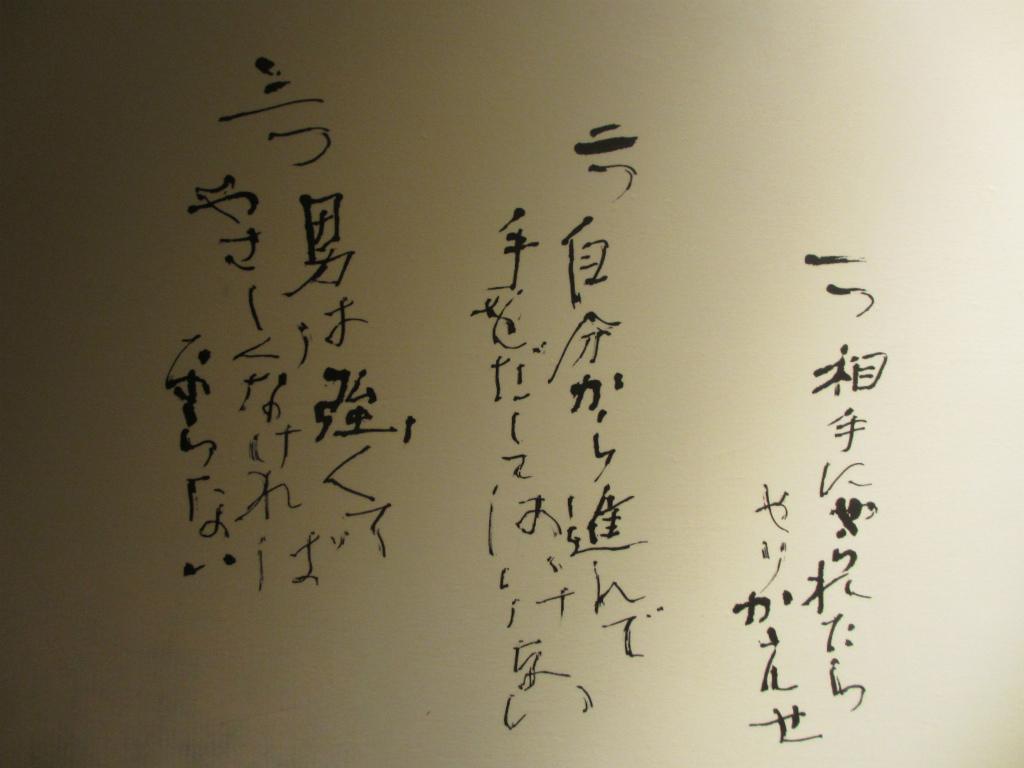 一つ 相手にやられたら
やりかえせ
二つ 自分から進んで
手をだしてはいけない
三つ 男は強くて
やさしくなければ
ならない